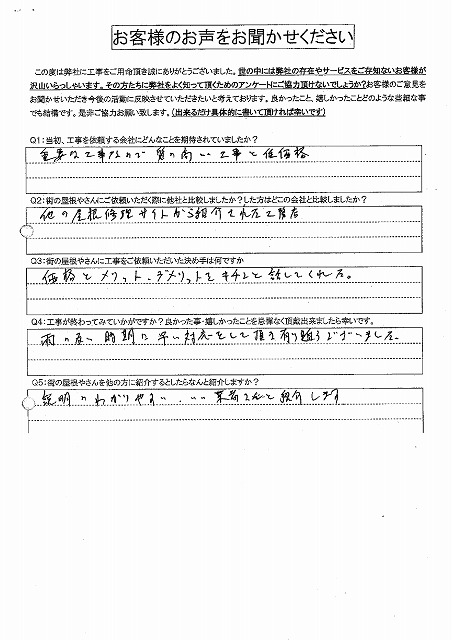 お客様のお声をお聞かせください
この度は弊社に工事をご用命頂き誠にありがとうございました。世の中には弊社の存在やサービスをご存知ないお客様が
沢山いらっしゃいます。その方たちに弊社をよく知って頂くためのアンケートにご協力頂けないでしょうか?お客様のご意見を
お聞かせいただき今後の活動に反映させていただきたいと考えております。良かったこと、嬉しかったことどのような些細な事
でも結構です。是非ご協力お願い致します。(出来るだけ具体的に書いて頂ければ幸いです)
Q1:当初、工事を依頼する会社にどんなことを期待されていましたか?
重要な工事なので質の高い工事と低価格
Q2:街の屋根やさんにご依頼いただく際に他社と比較しましたか?した方はどこの会社と比較しましたか?
他の屋根修理サイトから紹介された工務店
Q3:街の屋根やさんに工事をご依頼いただいた決め手は何ですか
価格とメリット・デメリットをキチンと話してくれた。
Q4:工事が終わってみていかがですか?良かった事・嬉しかったことを忌憚なく頂戴出来ましたら幸いです。
雨の多い時期に早い対応をして頂き有り難うございました。
Q5:街の屋根やさんを他の方に紹介するとしたらなんと紹介しますか?
説明のわかりやすい、いい業者さんと紹介します